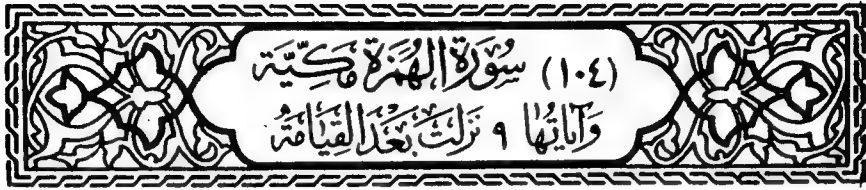 (١٠٤) سُورَةُ الهُمَزَةِ مَكِّيَّة
وَآيَاتُهَا ٩ نَزَلَتْ بَعْدَ القِيَامَةِ